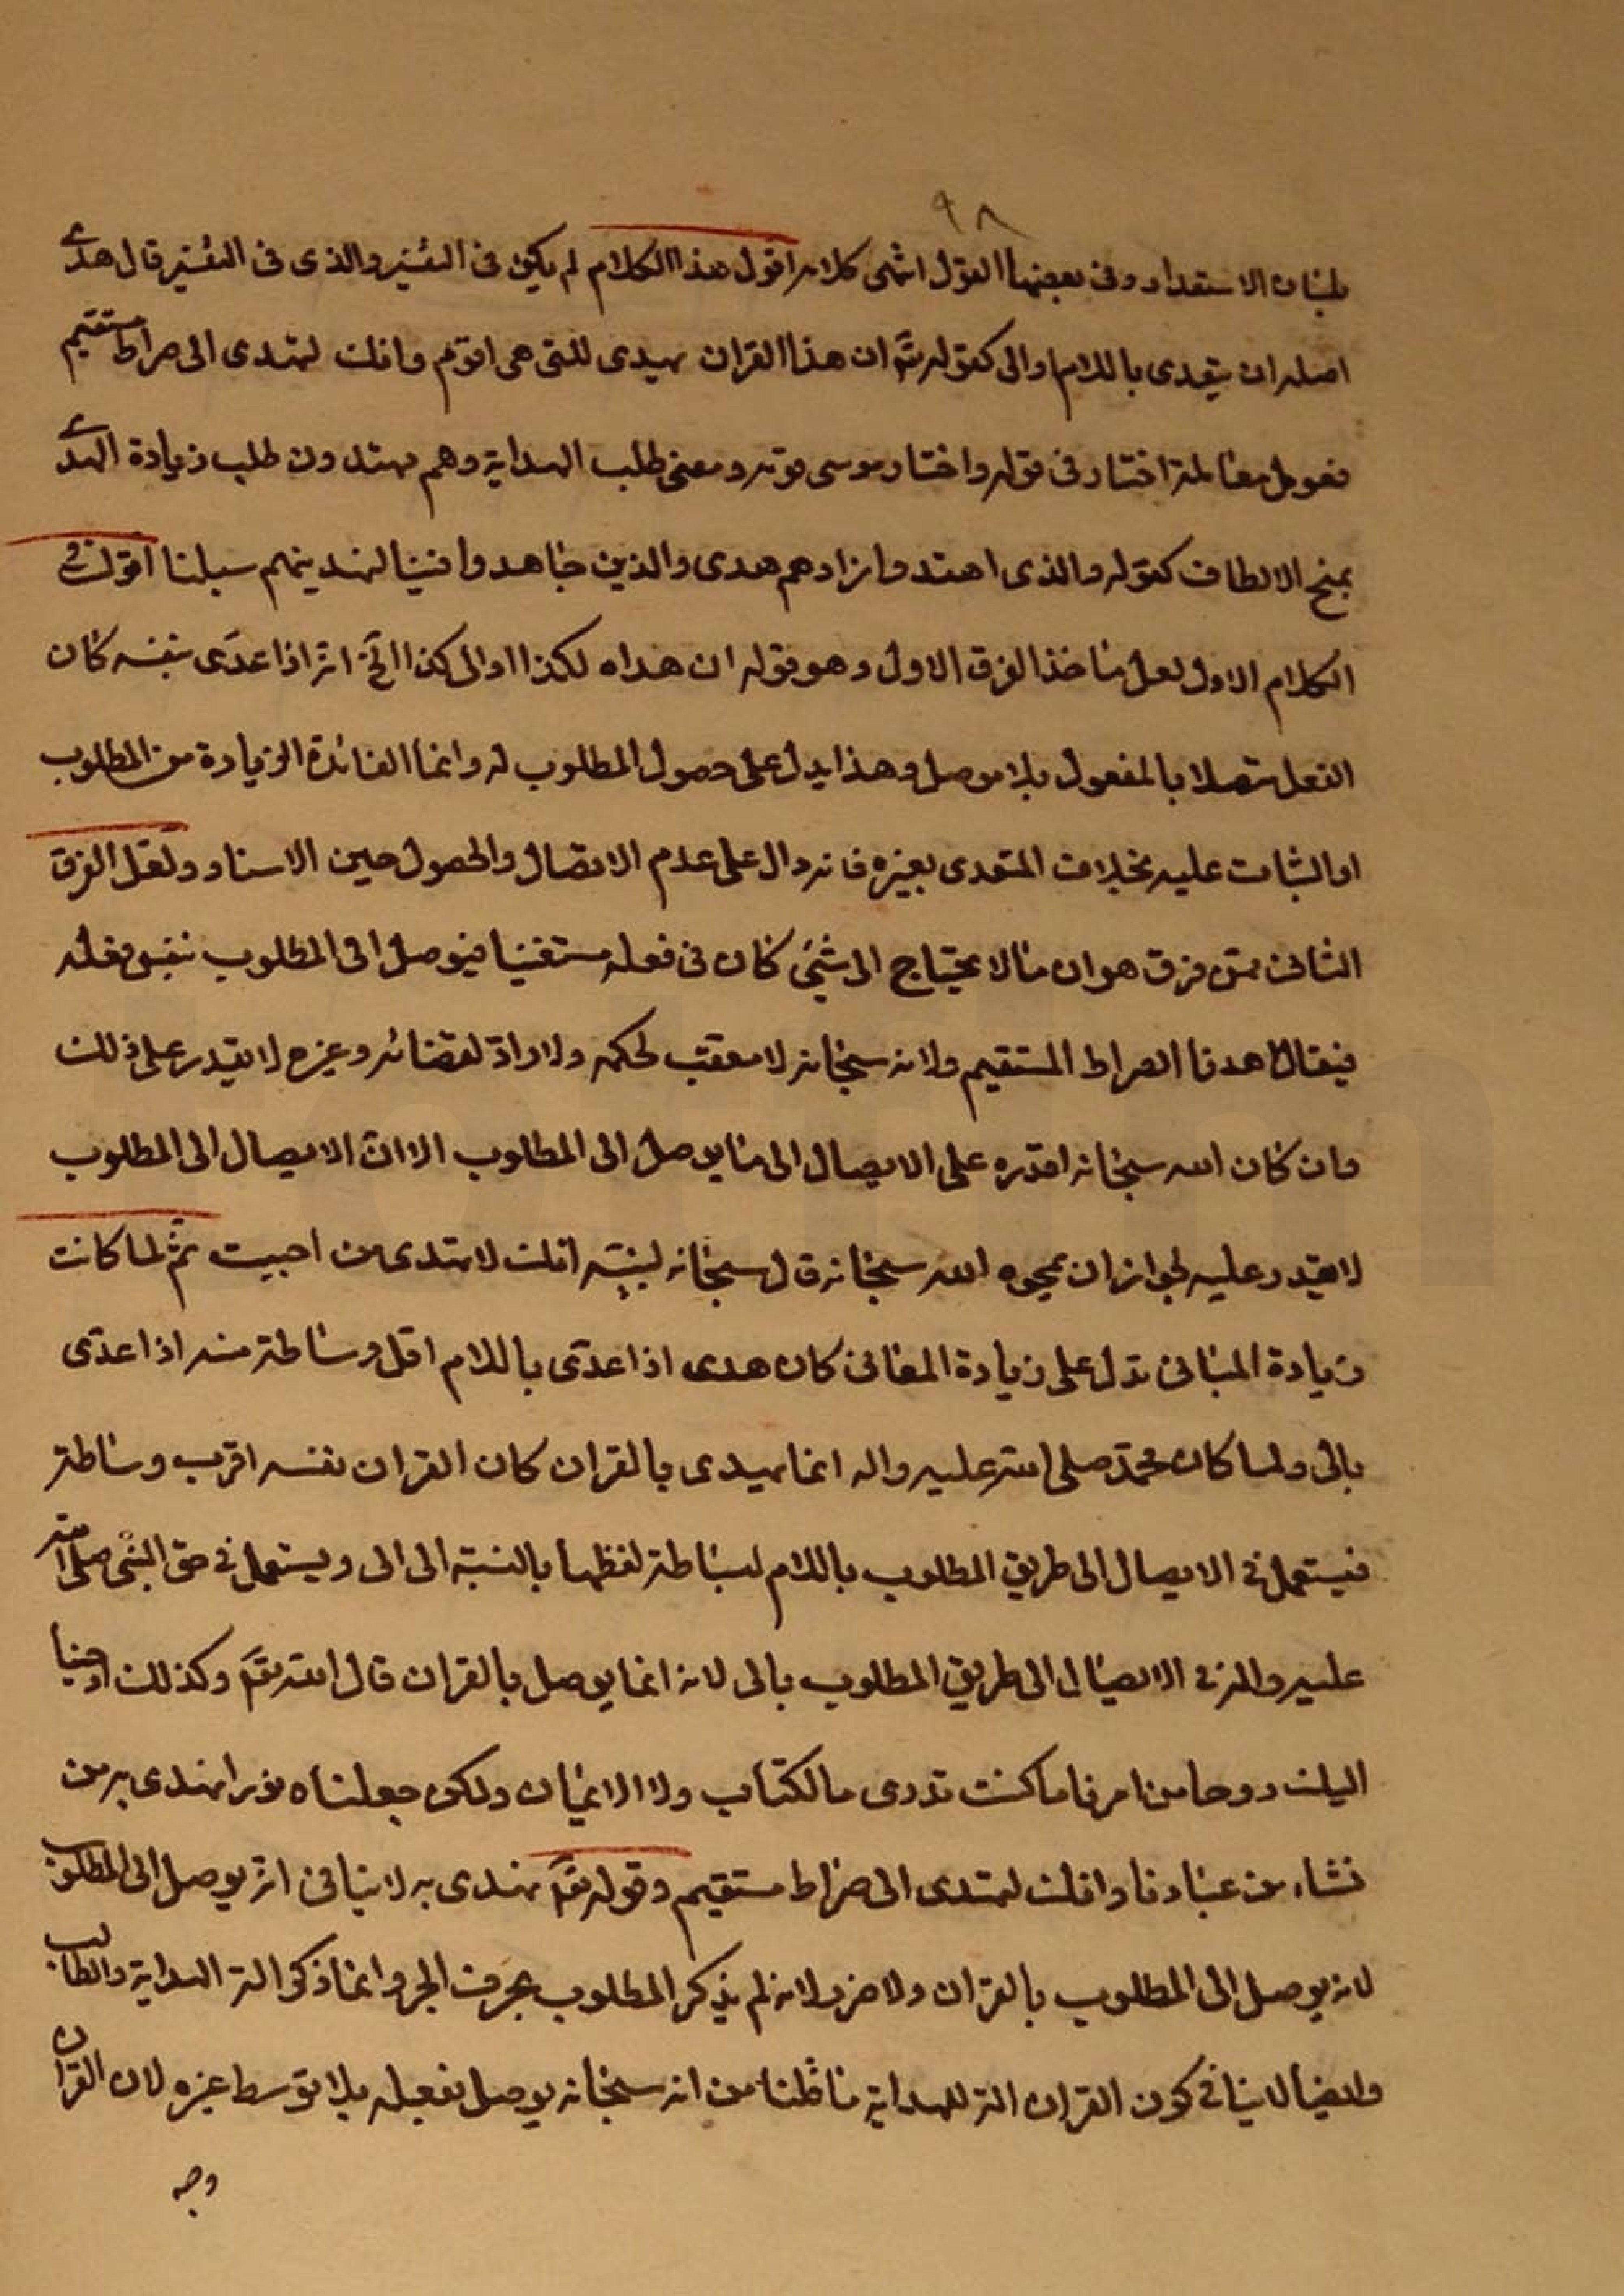 ٩٨
بلسان الاستعداد وفى بعضها القول انتهى كلامه اقول هذا الكلام لم يكن فى التفسير والذى فى التفسير قال هدى
اصله ان يتعدى باللام او الى كقوله تع ان هذا القران يهدى للتى هى اقوم وانك لتهدى الى صراط مستقيم
فعومل معاملة اختار فى قوله واختار موسى قومه ومعنى طلب الهداية وهم مهتدون طلب زيادة الهدى
بمنح الالطاف كقوله والذى اهتدوا زادهم هدى والذين جاهدوا فينا لنهدينهم سبلنا اقول فى
الكلام الاول لعل ماخذ الفرق الاول وهو قوله ان هداه لكذا او الى كذا الخ انه اذا عدى بنفسه كان
الفعل متصلا بالمفعول بلا موصل وهذا يدل على حصول المطلوب له وانما الفائدة الزيادة من المطلوب
او الثبات عليه بخلاف المتعدى بغيره فانه دال على عدم الاتصال والحصول حين الاسناد ولعل الفرق
الثانى ممن فرق هو ان ما لا يحتاج الى شئ كان فى فعله مستغنيا فيوصل الى المطلوب بنفس فعله
فيقال اهدنا الصراط المستقيم ولانه سبحانه لا معقب لحكمه ولا راد لقضائه وغيره لا يقدر على ذلك
وان كان الله سبحانه اقدره على الايصال الى ما يوصل الى المطلوب الا ان الايصال الى المطلوب
لا يقدر عليه لجواز ان يمحوه الله سبحانه قال سبحانه لنبيه انك لا تهدى من احببت ثم لما كانت
زيادة المبانى تدل على زيادة المعانى كان هدى اذا عدى باللام اقل وساطة منه اذا عدى
بالى ولما كان محمد صلى الله عليه واله انما يهدى بالقران كان القران نفسه اقرب وساطة
فيستعمل فى الايصال الى طريق المطلوب باللام لبساطة لفظها بالنسبة الى الى ويستعمل فى حق النبى صلى الله
عليه واله فى الايصال الى طريق المطلوب بالى لانه انما يوصل بالقران قال الله تع وكذلك اوحينا
اليك روحا من امرنا ما كنت تدرى ما الكتاب ولا الايمان ولكن جعلناه نورا نهدى به من
نشاء من عبادنا وانك لتهدى الى صراط مستقيم وقوله تع نهدى به لا ينافى انه يوصل الى المطلوب
لانه يوصل الى المطلوب بالقران ولا ضرر لانه لم يذكر المطلوب بحرف الجر وانما ذكر الة الهداية والطالب
وايضا لا ينافى كون القران الة للهداية ما قلنا من انه سبحانه يوصل بفعله بلا توسط غيره لان القران
وجه